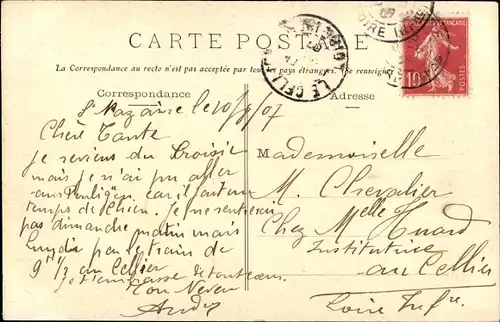 CARTE POSTALE
La Correspondance au recto n'est pas acceptée par tous les pays étrangers. (Se renseigner
Correspondance
Adresse
LE CELLIER
LOIRE INF
10
POSTES
St Nazaire le 10/9/07
Chère Tante
je reviens du Croisic
mais je n'ai pu aller
au Pouliguen car il fait un
temps de chien. je ne rentrerai
pas dimanche matin mais
lundi par le train de
9h 1/2 au Cellier
je t'embrasse de tout coeur
Ton Neveu
André
Mademoiselle
M. Chevalier
Chez Melle Huard
Institutrice
au Cellier
Loire Infre.